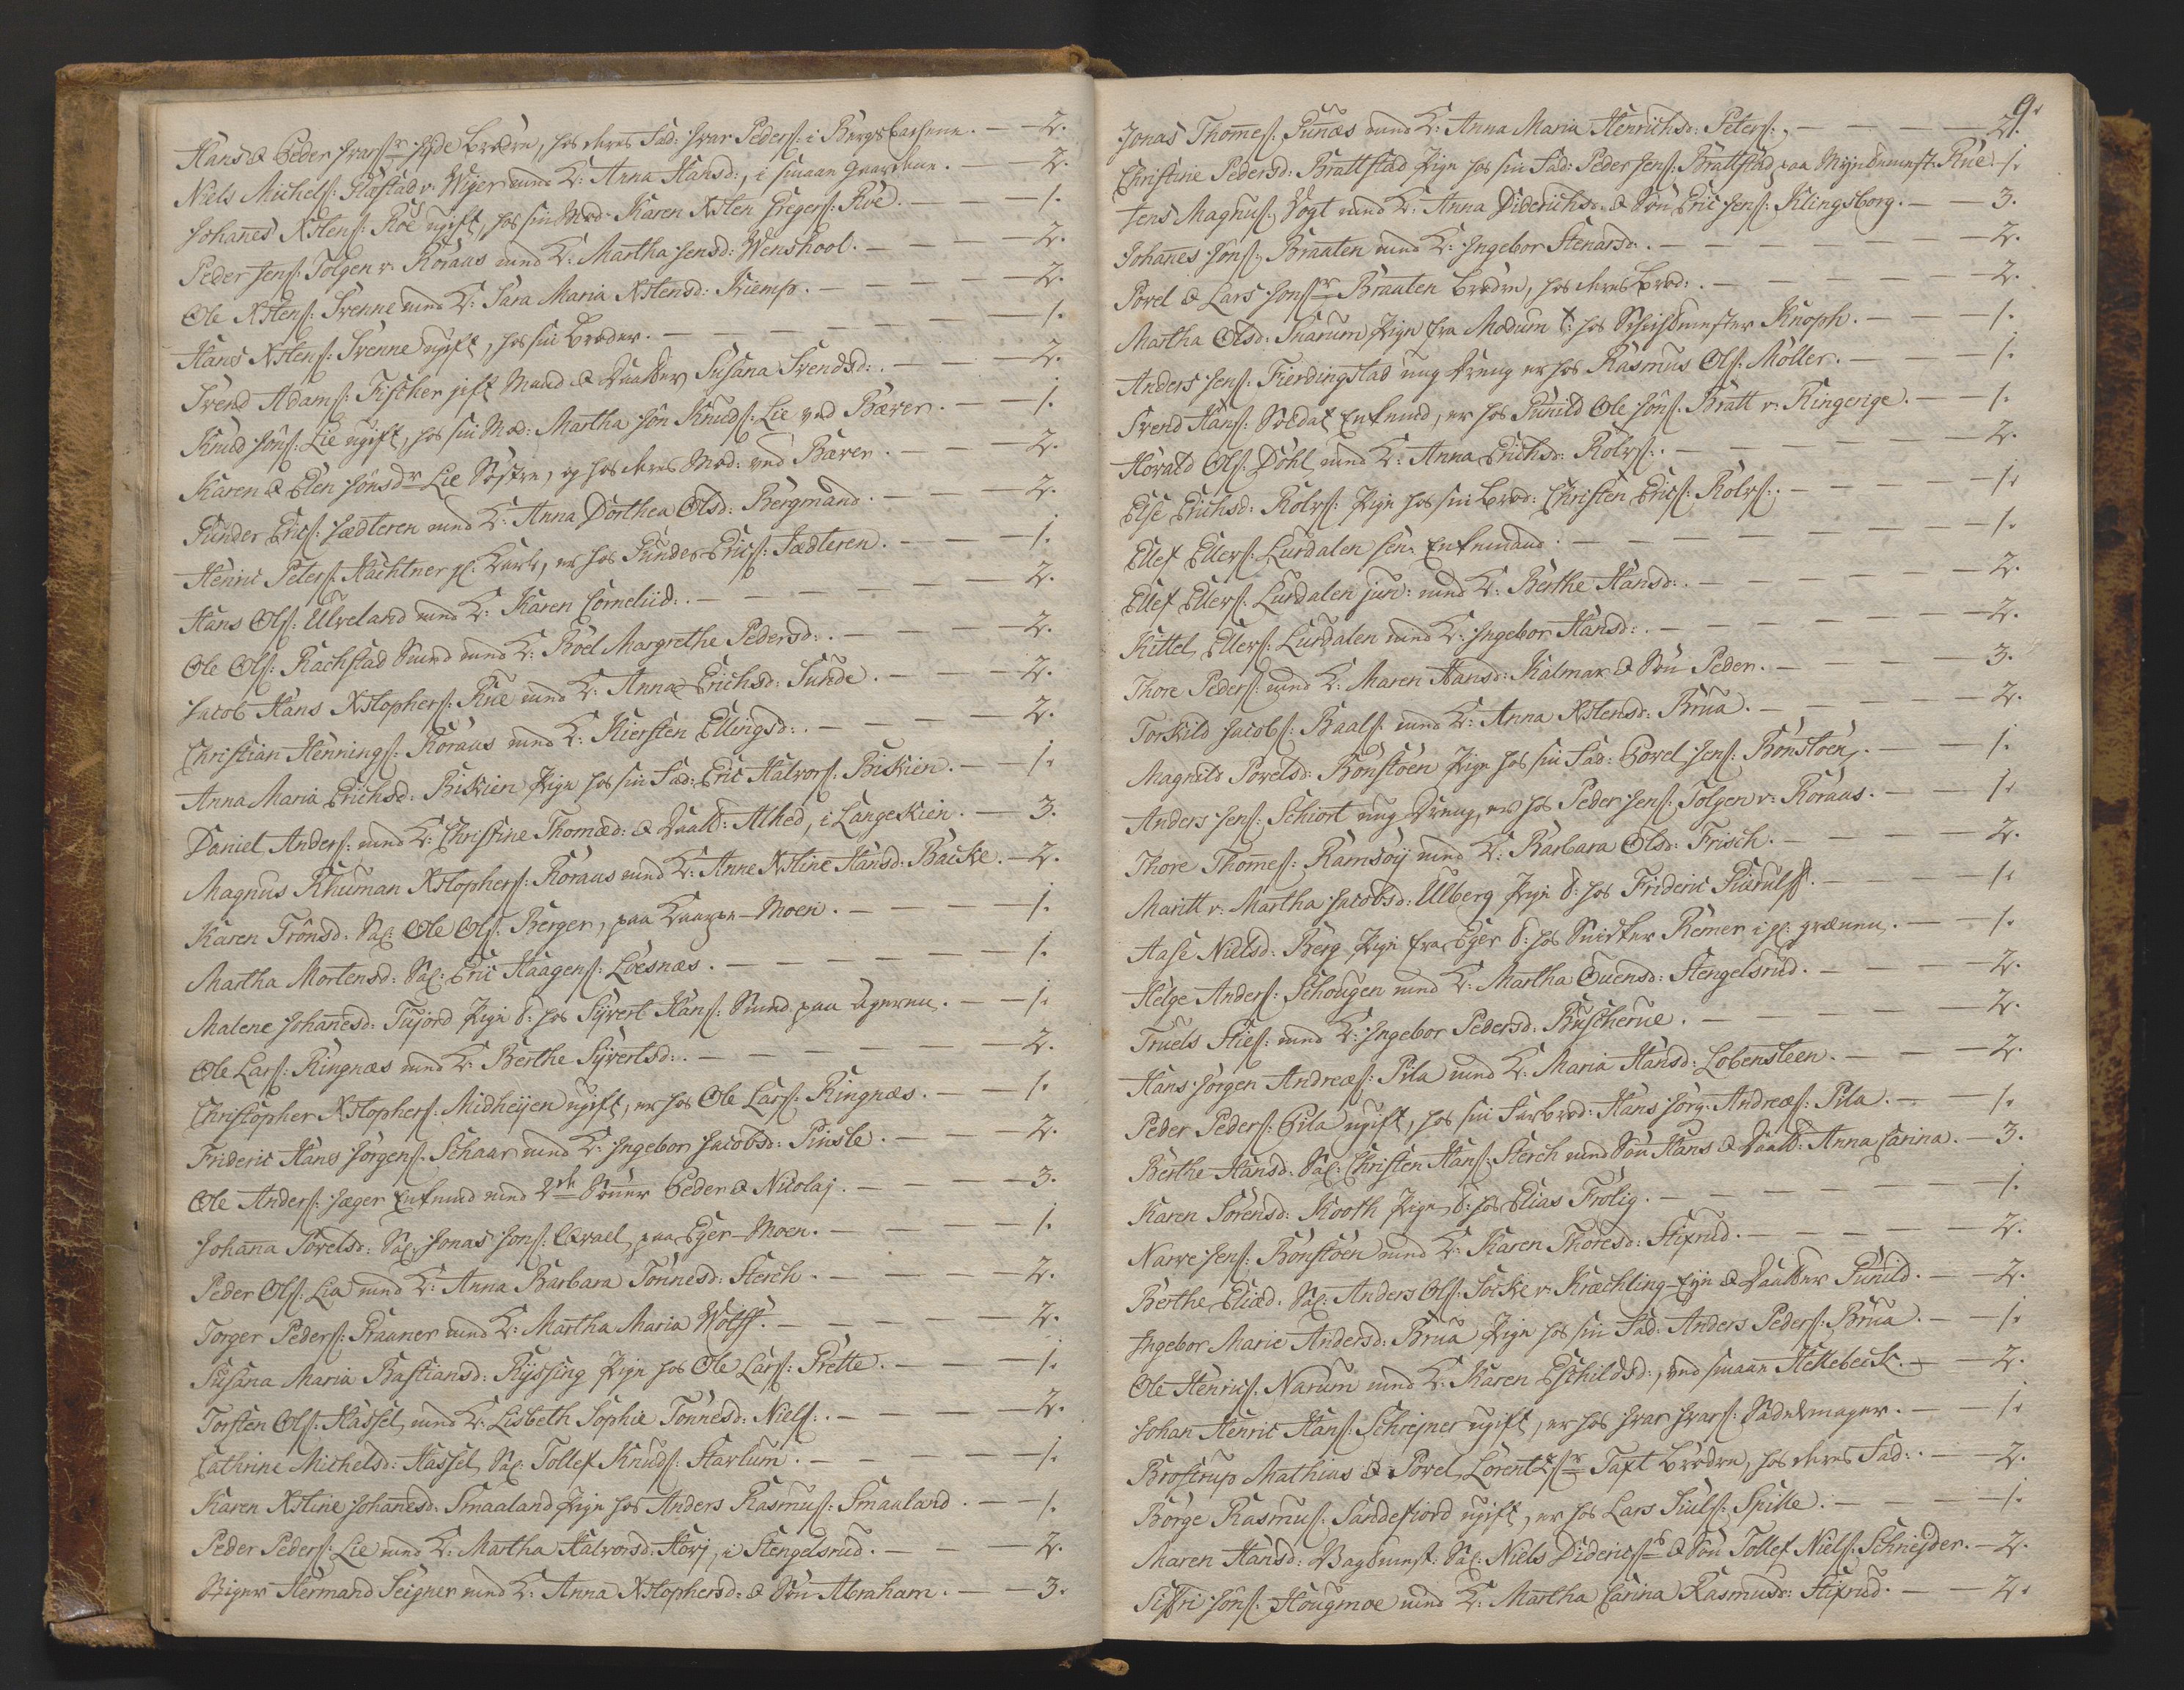 Hans & Peder Ivarsr Hyde brødre, hos deres Fad: Ivar Peders: i Bergs bachene. — 2.
Niels Michels: Røstad v. Wiger med K: Anna Hansd:, i smaae — 2.
Johanes Xstens: Roe ugift, hos sin Mod: Karen Xsten Gregers: Roe. — 1.
Peder Jens: Tolgen v. Røraas med K: Martha Jensd: Wenshool. — 2.
Ole Xstens: Svenne med K: Sara Maria Xstensd: Kiemp. — 2.
Hans Xstens: Svenne ugift, hos sin broder. — 1.
Svend Adams: Fischer gift Mand & Daatter Susana Svendsd:. — 2.
Knud Jóns: Lie ugift, hos sin Mod: Martha Jón Knuds: Lie ved Bæver. — 1.
Karen & Elen Jónsdr Lie Søstre, og hos deres Mod: ved Bæver. — 2.
Gunder Erics: Jædteren med K: Anna Dorthea Olsd: Bergmand. — 2.
Henric Peters: Hachtner gl: Karl, er hos Gunder Erics: Jædteren. — 1.
Hans Ols: Ulveland med K: Karen Corneliid:. — 2.
Ole Ols: Rachstad Smed med K: Boel Margrethe Pedersd:. — 2.
Jacob Hans Xstophers: Rue med K: Anna Erichsd: Sunde. — 2.
Christian Hennings: Røraas med K: Kiersten Ellingsd:. — 2.
Anna Maria Erichsd: Biskien Pige hos sin Fad: Eric Halvors: Biskien. — 1.
Daniel Anders: med K: Christine Thomæd: & Daatt: Alhed, i Langeskien. — 3.
Magnus Rhuman Xstophers: Røraas med K: Anne Xstine Hansd: Backe. — 2.
Karen Trónsd: Sal: Ole Ols: Berger, paa -Moen. — 1.
Martha Mortensd: Sal: Eric Haagens: Loesnæs. — 1.
Malene Johanesd: Tujord Pige t: hos Syvert Hans: Smed paa Ageren. — 1.
Ole Lars: Ringnæs med K: Berthe Syvertsd:. — 2.
Christopher Xstophers: Midheijen ugift, er hos Ole Lars: Ringnæs. — 1.
Frideric Hans Jørgens: Schaar med K: Ingebor Jacobsd: Pinsle. — 2.
Ole Anders: Jæger Enkemd med 2de Sønner Peder & Nicolaj. — 3.
Johana Povelsd: Sal: Jonas Jons: Qvael, paa Eger-Moen. — 1.
Peder Ols: Lia med K: Anna Barbara Tønnesd: Sterch. — 2.
Torger Peders: Praaner med K: Martha Maria Wolff. — 2.
Susana Maria Bastiansd: Ryssing Pige hos Ole Lars: Prette. — 1.
Torsten Ols: Hassel, med K: Lisbeth Sophie Tønnesd: Niels:. — 2.
Cathrine Michelsd: Hassel, Sal: Tollef Knuds: Starlum. — 1.
Karen Xstine Johanesd: Smaaland Pige hos Anders Rasmus: Smaaland. — 1.
Peder Peders: Lie med K: Martha Halvorsd: Hovj, i Stengelsrud. — 2.
Stiger Hermand Seigner med K: Anna Xstophersd: & Søn Abraham. — 3.
9.
Jonas Thomes: Gunæs med K: Anna Maria Henrichsd: Peters:, — 2.
Christine Pedersd: Brattstad Pige hos sin Fad: Peder Jens: Brattstad, paa Rue. — 1.
Jens Magnus: Vogt med K: Anna Diderichsd: & Søn Eric Jens: Klingsborg. — 3.
Johanes Jóns: Braaten med K: Ingebor Stenarsd:. — 2.
Povel & Lars Jonsr Braaten brødre, hos deres brod:. — 2.
Martha Olsd: Snarum Pige fra Modum t: hos Schichtmester Knoph. — 1.
Anders Jens: Fierdingstad ung Dreng er hos Rasmus Ols: Møller. — 1.
Svend Hans: Soldat Enkemd, er hos Gunild Ole Jóns: Bratt v. Ringerige. — 1.
Horald Ols: Døhl med K: Anna Erichsd: Rolvs:. — 2.
Else Erichsd: Rolvs: Pige hos sin brod: Christen Erics: Rolvs:. — 1.
Ellef Ellevs: Lurdalen sen: Enkemand. — 1.
Ellef Ellevs: Lurdalen jun: med K: Berthe Hansd:. — 2.
Kittel Ellevs: Lurdalen med K: Ingebor Hansd:. — 2.
Thore Peders: med K: Maren Hansd: Kalmar & Søn Peder. — 3.
Torkild Jacobs: Baals: med K: Anna Xstensd: Brua. — 2.
Magnild Povelsd: Bonstøen Pige hos sin Fad: Povel Jens: Bonstøen. — 1.
Anders Jens: Schiort ung Dreng, er hos Peder Jens: Tolgen v. Røraas. — 1.
Thore Thomes: Ramsøy med K: Barbara Olsd: Frisch. — 2.
Maritt v. Martha Jacobsd: Ulberg Pige t: hos Frideric Piærulff. — 1.
Aase Nielsd: Berg Pige fra Eger t: hos Snidker Remer i gl: grænen. — 1.
Helge Anders: Schougen med K: Martha Guensd: Stengelsrud. — 2.
Truels Sties: med K: Ingebor Pedersd: Buscherue. — 2.
Hans Jørgen Andreæs: Pila med K: Maria Hansd: Lobensteen. — 2.
Peder Peders: Pila ugift, hos sin Farbrod: Hans Jørg: Andreæs: Pila. — 1.
Berthe Hansd: Sal: Christen Hans: Sterch med Søn Hans & Daatt: Anna Carina. — 3.
Karen Sørensd: Kooth Pige, t: hos Elias Frølig. — 1.
Narve Jens: Bonstøen med K: Karen Thoresd: Stixrud. — 2.
Berthe Eliæd: Sal: Anders Ols: Socke v. Kræchling-Eje & Daatter Gunild. — 2.
Ingebor Marie Andersd: Brua Pige hos sin Fad: Anders Peders: Brua. — 1.
Ole Henrics: Narum med K: Karen Eschildsd:, ved smaae Hellebeck. — 2.
Johan Henric Hans: Schrejner ugift, er hos Ivar Ivars: Sadelmager. — 1.
Brostrup Mathias & Povel, Lorentzsr Taxt brødre, hos deres Fad:. — 2.
Børge Rasmus: Sandefiord ugift, er hos Lars Juuls: Spille. — 1.
Maren Hansd: Sal: Niels Didericss & Søn Tollef Niels: Schnejder. — 2.
Siffri Jóns: Hougmoe med K: Martha Carina Rasmusd: Stixrud. — 2.